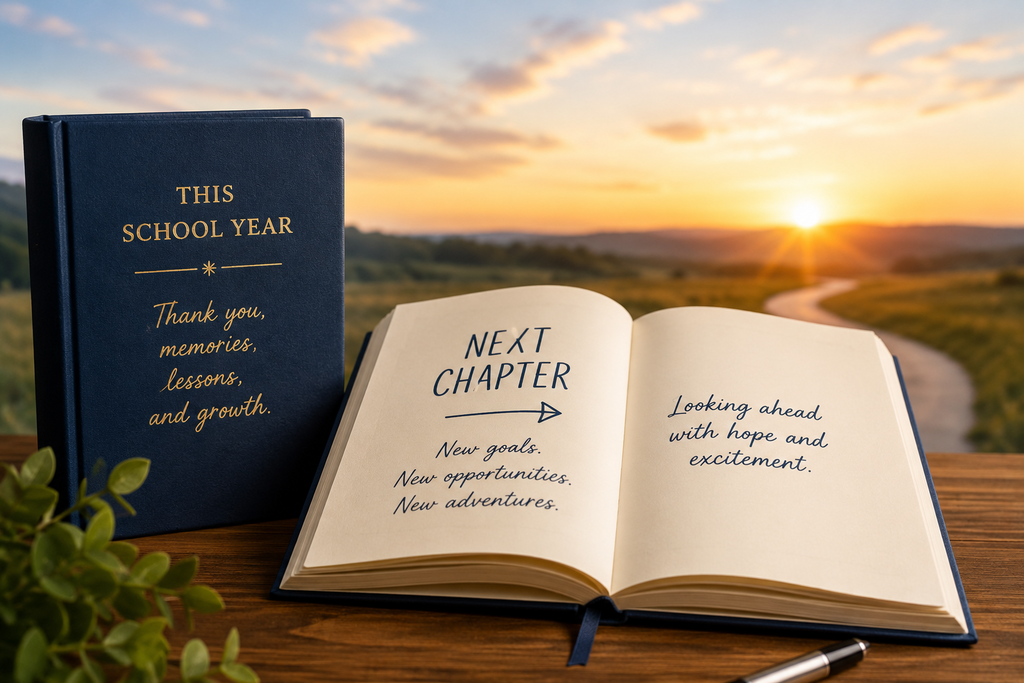 THIS
SCHOOL YEAR
Thank you,
memories,
lessons,
and growth.
NEXT
CHAPTER
New goals.
New opportunities.
New adventures.
Looking ahead
with hope and
excitement.